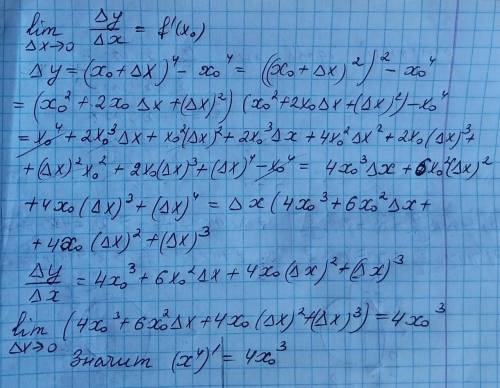 lim Δy/Δx = f'(x₀)
Δx→0
Δy = (x₀ + Δx)⁴ − x₀⁴ = ((x₀ + Δx)²)² − x₀⁴
= (x₀² + 2x₀ Δx + (Δx)²) (x₀² + 2x₀Δx + (Δx)²) − x₀⁴
= x₀⁴ + 2x₀³Δx + x₀²(Δx)² + 2x₀³Δx + 4x₀²Δx² + 2x₀(Δx)³ +
+ (Δx)²x₀² + 2x₀(Δx)³ + (Δx)⁴ − x₀⁴ = 4x₀³Δx + 6x₀²(Δx)²
+ 4x₀(Δx)³ + (Δx)⁴ = Δx(4x₀³ + 6x₀²Δx +
+ 4x₀(Δx)² + (Δx)³
Δy/Δx = 4x₀³ + 6x₀²Δx + 4x₀(Δx)² + (Δx)³
lim (4x₀³ + 6x₀²Δx + 4x₀(Δx)² + (Δx)³) = 4x₀³
Δx→0
Значит (x⁴)' = 4x₀³